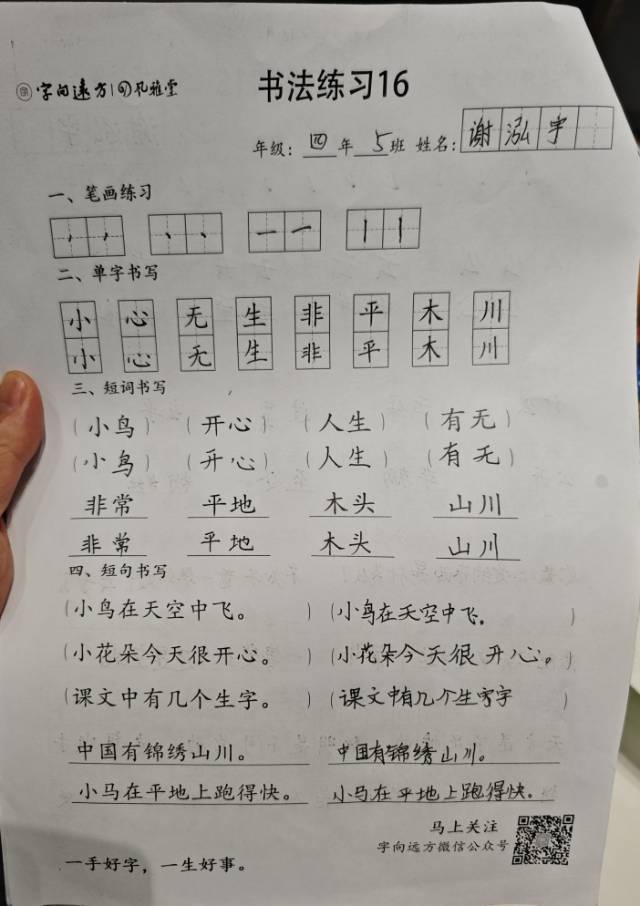 字向远方|风雅堂
书法练习16
年级：四年5班 姓名：谢泓宇
一、笔画练习
二、单字书写
小 心 无 生 非 平 木 川
小 心 无 生 非 平 木 川
三、短词书写
（小鸟）（开心）（人生）（有无）
（小鸟）（开心）（人生）（有无）
非常 平地 木头 山川
非常 平地 木头 山川
四、短句书写
（小鸟在天空中飞。）（小鸟在天空中飞。）
（小花朵今天很开心。）（小花朵今天很开心。）
（课文中有几个生字。）（课文中有几个生字字）
中国有锦绣山川。 中国有锦绣山川。
小马在平地上跑得快。 小马在平地上跑得快.
马上关注
字向远方微信公众号
一手好字，一生好事。